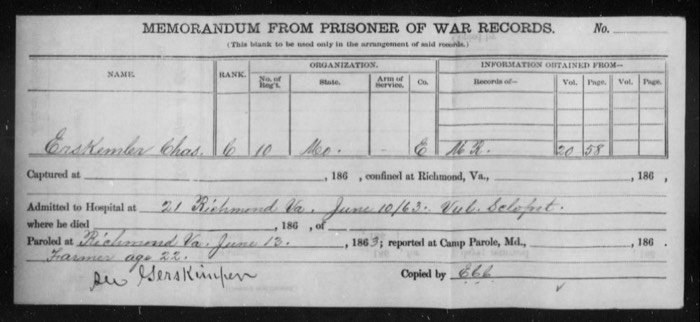 MEMORANDUM FROM PRISONER OF WAR RECORDS. No.
(This blank to be used only in the arrangement of said records.)
NAME. RANK. ORGANIZATION. INFORMATION OBTAINED FROM—
No. of Reg't. State. Arm of Service. Co. Records of— Vol. Page. Vol. Page.
Erskemler Chas. C 10 Mo. - E M R. 20 58
Captured at , 186 , confined at Richmond, Va., , 186 ,
Admitted to Hospital at 21 Richmond Va. June 10/63. Vul. Sclopt.
where he died , 186 , of
Paroled at Richmond Va. June 13. , 1863; reported at Camp Parole, Md., , 186 .
Farmer age 22.
See Gerskimper Copied by